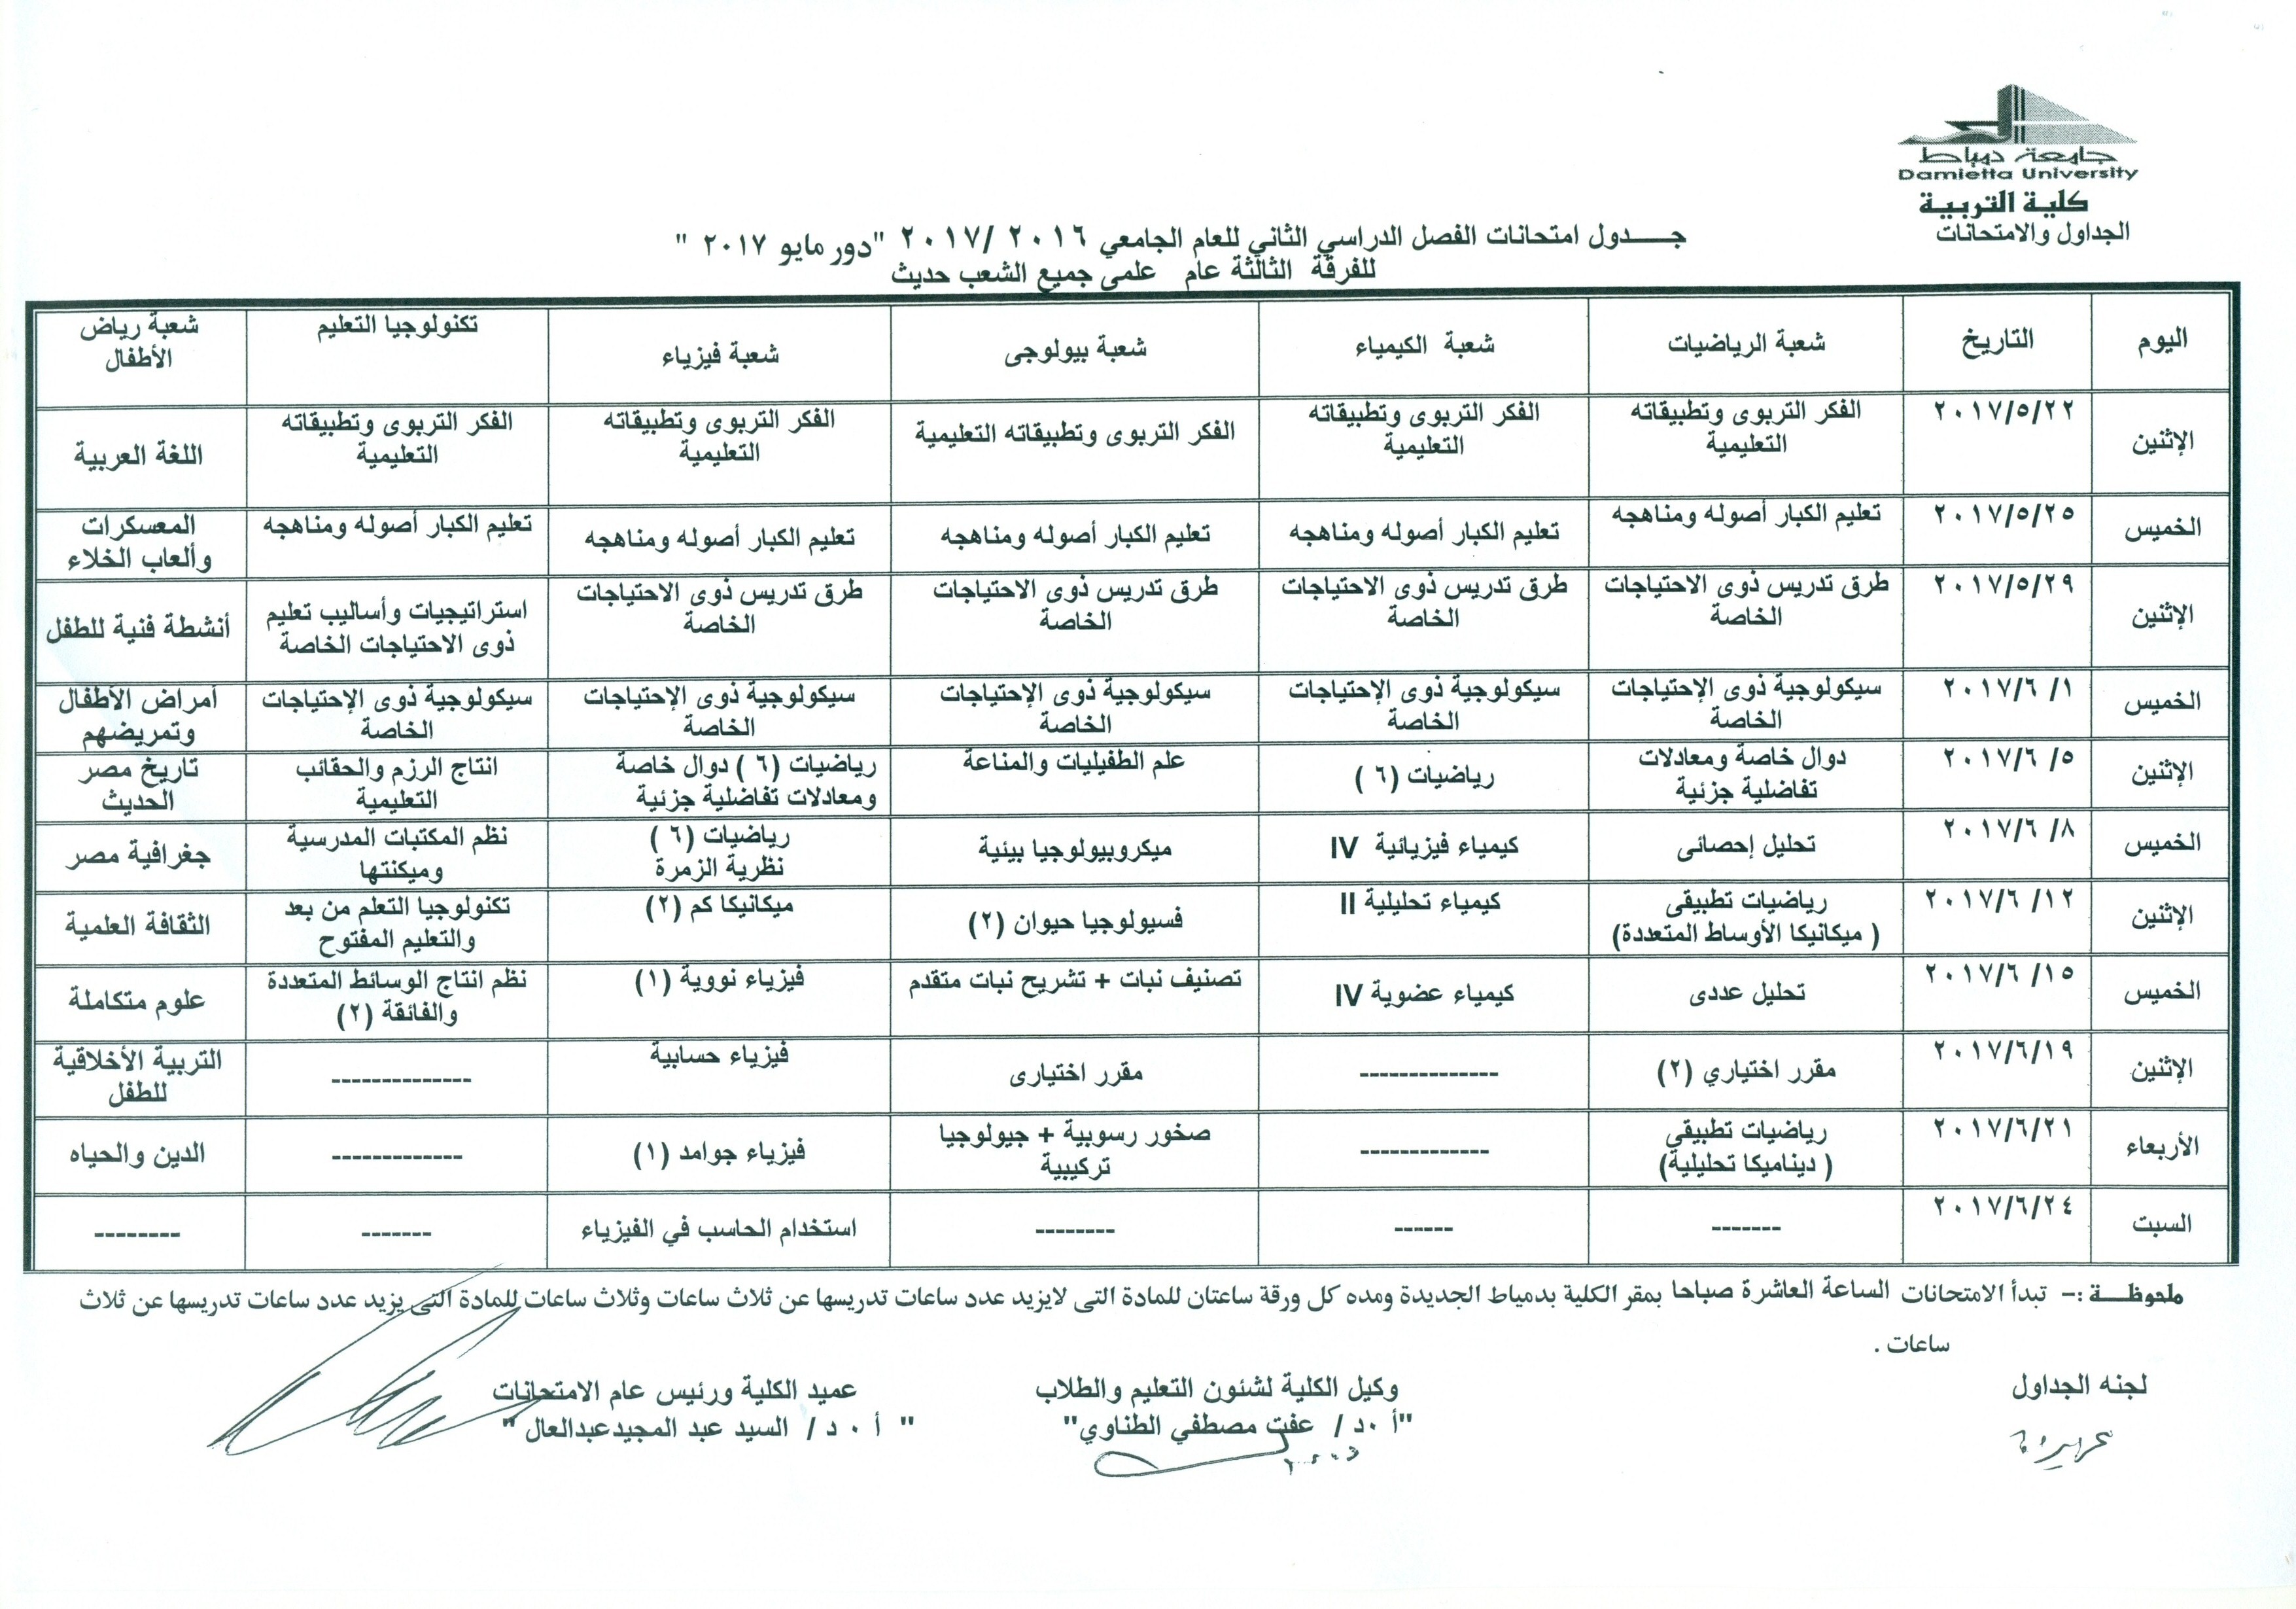 جامعة دمياط
Damietta University
كلية التربية
الجداول والامتحانات
جـــدول امتحانات الفصل الدراسي الثاني للعام الجامعي ٢٠١٦ /٢٠١٧ "دور مايو ٢٠١٧ "
للفرقة الثالثة عام علمى جميع الشعب حديث
اليوم التاريخ شعبة الرياضيات شعبة الكيمياء شعبة بيولوجى شعبة فيزياء تكنولوجيا التعليم شعبة رياض الأطفال
الإثنين ٢٠١٧/٥/٢٢ الفكر التربوى وتطبيقاته التعليمية الفكر التربوى وتطبيقاته التعليمية الفكر التربوى وتطبيقاته التعليمية الفكر التربوى وتطبيقاته التعليمية الفكر التربوى وتطبيقاته التعليمية اللغة العربية
الخميس ٢٠١٧/٥/٢٥ تعليم الكبار أصوله ومناهجه تعليم الكبار أصوله ومناهجه تعليم الكبار أصوله ومناهجه تعليم الكبار أصوله ومناهجه تعليم الكبار أصوله ومناهجه المعسكرات وألعاب الخلاء
الإثنين ٢٠١٧/٥/٢٩ طرق تدريس ذوى الاحتياجات الخاصة طرق تدريس ذوى الاحتياجات الخاصة طرق تدريس ذوى الاحتياجات الخاصة طرق تدريس ذوى الاحتياجات الخاصة استراتيجيات وأساليب تعليم ذوى الاحتياجات الخاصة أنشطة فنية للطفل
الخميس ٢٠١٧/٦ /١ سيكولوجية ذوى الإحتياجات الخاصة سيكولوجية ذوى الإحتياجات الخاصة سيكولوجية ذوى الإحتياجات الخاصة سيكولوجية ذوى الإحتياجات الخاصة سيكولوجية ذوى الإحتياجات الخاصة أمراض الأطفال وتمريضهم
الإثنين ٢٠١٧/٦ /٥ دوال خاصة ومعادلات تفاضلية جزئية رياضيات (٦ ) علم الطفيليات والمناعة رياضيات (٦ ) دوال خاصة ومعادلات تفاضلية جزئية انتاج الرزم والحقائب التعليمية تاريخ مصر الحديث
الخميس ٢٠١٧/٦ /٨ تحليل إحصائى كيمياء فيزيائية IV ميكروبيولوجيا بيئية رياضيات (٦ ) نظرية الزمرة نظم المكتبات المدرسية وميكنتها جغرافية مصر
الإثنين ٢٠١٧/٦ /١٢ رياضيات تطبيقى ( ميكانيكا الأوساط المتعددة) كيمياء تحليلية II فسيولوجيا حيوان (٢) ميكانيكا كم (٢) تكنولوجيا التعلم من بعد والتعليم المفتوح الثقافة العلمية
الخميس ٢٠١٧/٦ /١٥ تحليل عددى كيمياء عضوية IV تصنيف نبات + تشريح نبات متقدم فيزياء نووية (١) نظم انتاج الوسائط المتعددة والفائقة (٢) علوم متكاملة
الإثنين ٢٠١٧/٦/١٩ مقرر اختياري (٢) -------------- مقرر اختيارى فيزياء حسابية -------------- التربية الأخلاقية للطفل
الأربعاء ٢٠١٧/٦/٢١ رياضيات تطبيقى ( ديناميكا تحليلية) ------------- صخور رسوبية + جيولوجيا تركيبية فيزياء جوامد (١) ------------- الدين والحياه
السبت ٢٠١٧/٦/٢٤ ------- ------ -------- استخدام الحاسب في الفيزياء ------- --------
ملحوظـــة :- تبدأ الامتحانات الساعة العاشرة صباحا بمقر الكلية بدمياط الجديدة ومده كل ورقة ساعتان للمادة التى لايزيد عدد ساعات تدريسها عن ثلاث ساعات وثلاث ساعات للمادة التى يزيد عدد ساعات تدريسها عن ثلاث
ساعات .
لجنه الجداول وكيل الكلية لشئون التعليم والطلاب عميد الكلية ورئيس عام الامتحانات
"أ ٠د / عفت مصطفي الطناوي" " أ ٠ د / السيد عبد المجيدعبدالعال "